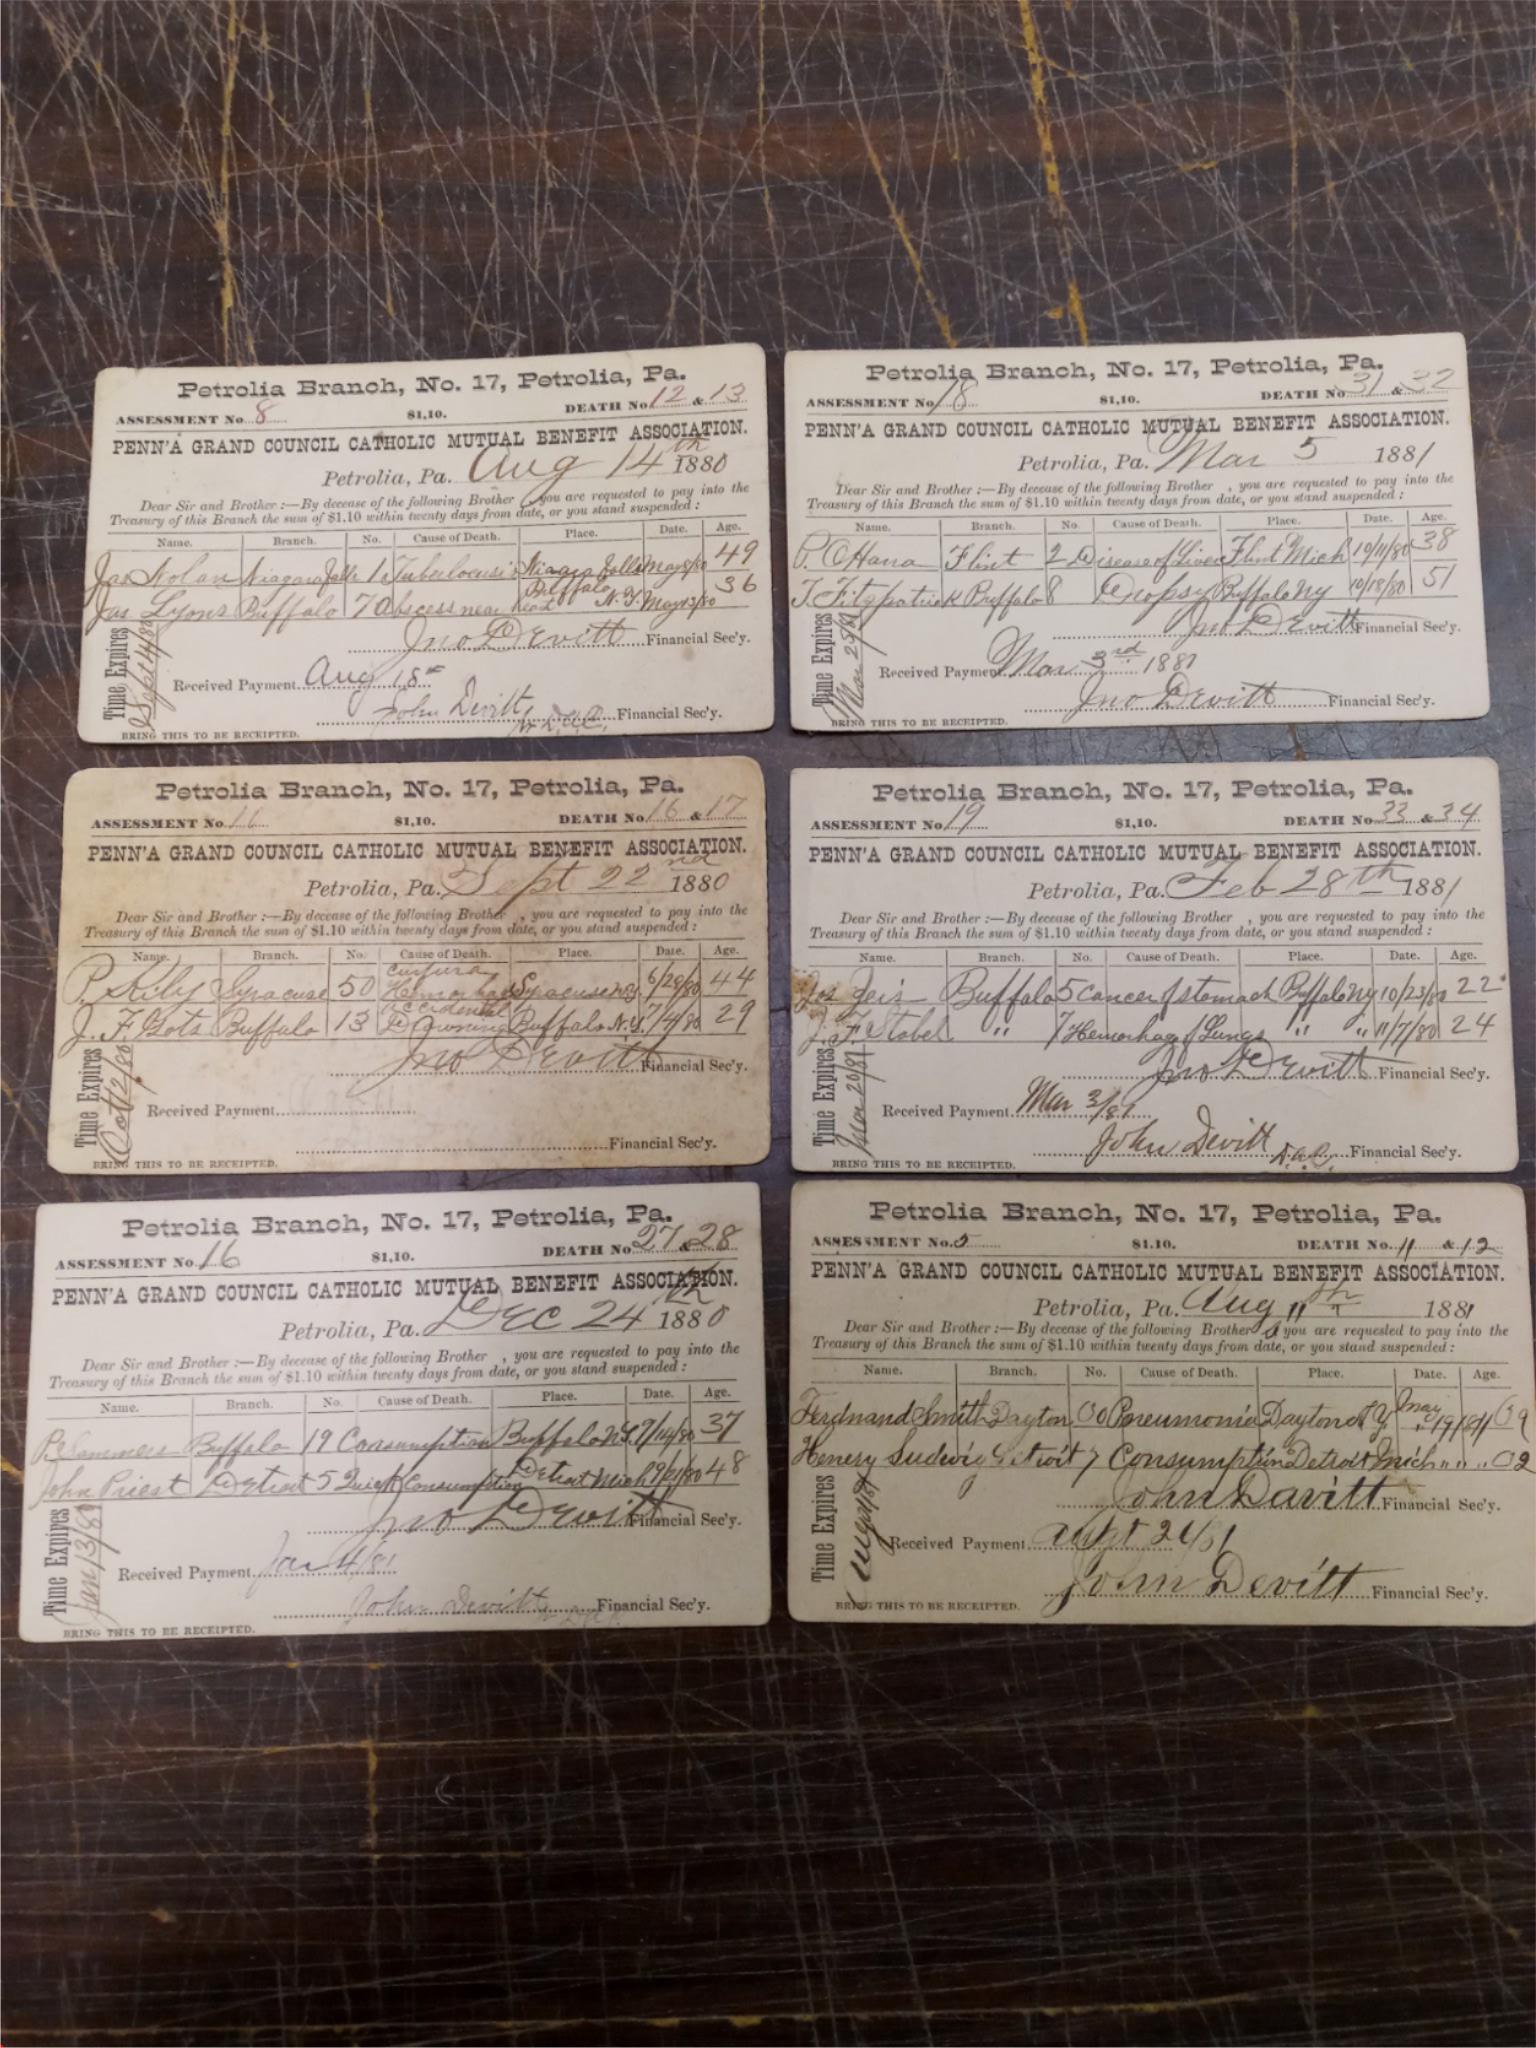 Petrolia Branch, No. 17, Petrolia, Pa.
ASSESSMENT No 8 $1,10. DEATH No 12 & 13
PENN'A GRAND COUNCIL CATHOLIC MUTUAL BENEFIT ASSOCIATION.
Petrolia, Pa. Aug 14th 1880
Dear Sir and Brother :—By decease of the following Brother , you are requested to pay into the
Treasury of this Branch the sum of $1.10 within twenty days from date, or you stand suspended :
Name. Branch. No. Cause of Death. Place. Date. Age.
Jas Nolan Niagara Falls 1 Niagara Falls May 49
Jas Lyons Buffalo 7 Abscess near heart Buffalo N.Y. May 13/80 36
Jno DEvitt Financial Sec'y.
Time Expires Sept 4/80
Received Payment Aug 18
John Devitt Financial Sec'y.
BRING THIS TO BE RECEIPTED.
Petrolia Branch, No. 17, Petrolia, Pa.
ASSESSMENT No 18 $1,10. DEATH No 31 & 32
PENN'A GRAND COUNCIL CATHOLIC MUTUAL BENEFIT ASSOCIATION.
Petrolia, Pa. Mar 5 1881
Dear Sir and Brother :—By decease of the following Brother , you are requested to pay into the
Treasury of this Branch the sum of $1.10 within twenty days from date, or you stand suspended :
Name. Branch. No. Cause of Death. Place. Date. Age.
P. OHara Flint 2 Disease of Liver Flint Mich 10/11/80 38
T. Fitzpatrick Buffalo 8 Dropsy Buffalo Ny 10/18/80 51
Jno DEvitt Financial Sec'y.
Time Expires Mar 25/81
Received Payment Mar 3rd 1881
Jno Devitt Financial Sec'y.
BRING THIS TO BE RECEIPTED.
Petrolia Branch, No. 17, Petrolia, Pa.
ASSESSMENT No $1,10. DEATH No 16 & 17
PENN'A GRAND COUNCIL CATHOLIC MUTUAL BENEFIT ASSOCIATION.
Petrolia, Pa. Sept 22nd 1880
Dear Sir and Brother :—By decease of the following Brother , you are requested to pay into the
Treasury of this Branch the sum of $1.10 within twenty days from date, or you stand suspended :
Name. Branch. No. Cause of Death. Place. Date. Age.
P. Kily Syracuse 50 Syracuse Ny 6/29/80 44
J. F. Gots Buffalo 13 Accidental Drowning Buffalo N.Y. 7/4/80 29
Jno DEvitt Financial Sec'y.
Time Expires Oct 12/80
Received Payment
Financial Sec'y.
BRING THIS TO BE RECEIPTED.
Petrolia Branch, No. 17, Petrolia, Pa.
ASSESSMENT No 19 $1,10. DEATH No 33 & 34
PENN'A GRAND COUNCIL CATHOLIC MUTUAL BENEFIT ASSOCIATION.
Petrolia, Pa. Feb 28th 1881
Dear Sir and Brother :—By decease of the following Brother , you are requested to pay into the
Treasury of this Branch the sum of $1.10 within twenty days from date, or you stand suspended :
Name. Branch. No. Cause of Death. Place. Date. Age.
Jos Geis Buffalo 5 Cancer of stomach Buffalo Ny 10/23/80 22
J. F. Stabel " 7 Hemorhag of Lungs " " 11/7/80 24
Jno DEvitt Financial Sec'y.
Time Expires Mar 20/81
Received Payment Mar 3/81
John Devitt D.A.C. Financial Sec'y.
BRING THIS TO BE RECEIPTED.
Petrolia Branch, No. 17, Petrolia, Pa.
ASSESSMENT No 16 $1,10. DEATH No 27 & 28
PENN'A GRAND COUNCIL CATHOLIC MUTUAL BENEFIT ASSOCIATION.
Petrolia, Pa. DEC 24th 1880
Dear Sir and Brother :—By decease of the following Brother , you are requested to pay into the
Treasury of this Branch the sum of $1.10 within twenty days from date, or you stand suspended :
Name. Branch. No. Cause of Death. Place. Date. Age.
Sammers Buffalo 19 Consumption Buffalo NY 9/14/80 37
John Priest Detroit 5 Quick Consumption Detroit Mich 9/21/80 48
Jno DEvitt Financial Sec'y.
Time Expires Jan/13/81
Received Payment Jan 4/81
John Devitt Financial Sec'y.
BRING THIS TO BE RECEIPTED.
Petrolia Branch, No. 17, Petrolia, Pa.
ASSESSMENT No. 5 $1.10. DEATH No. 11 & 12
PENN'A GRAND COUNCIL CATHOLIC MUTUAL BENEFIT ASSOCIATION.
Petrolia, Pa. Aug 11th 1881
Dear Sir and Brother :—By decease of the following Brother s you are requested to pay into the
Treasury of this Branch the sum of $1.10 within twenty days from date, or you stand suspended :
Name. Branch. No. Cause of Death. Place. Date. Age.
Ferdnand Smith Dayton Pneumonia Dayton May
Henery Ludwic Detroit 7 Consumption Detroit Mich " "
John Davitt Financial Sec'y.
Time Expires
Received Payment Augt 24/81
John Devitt Financial Sec'y.
BRING THIS TO BE RECEIPTED.